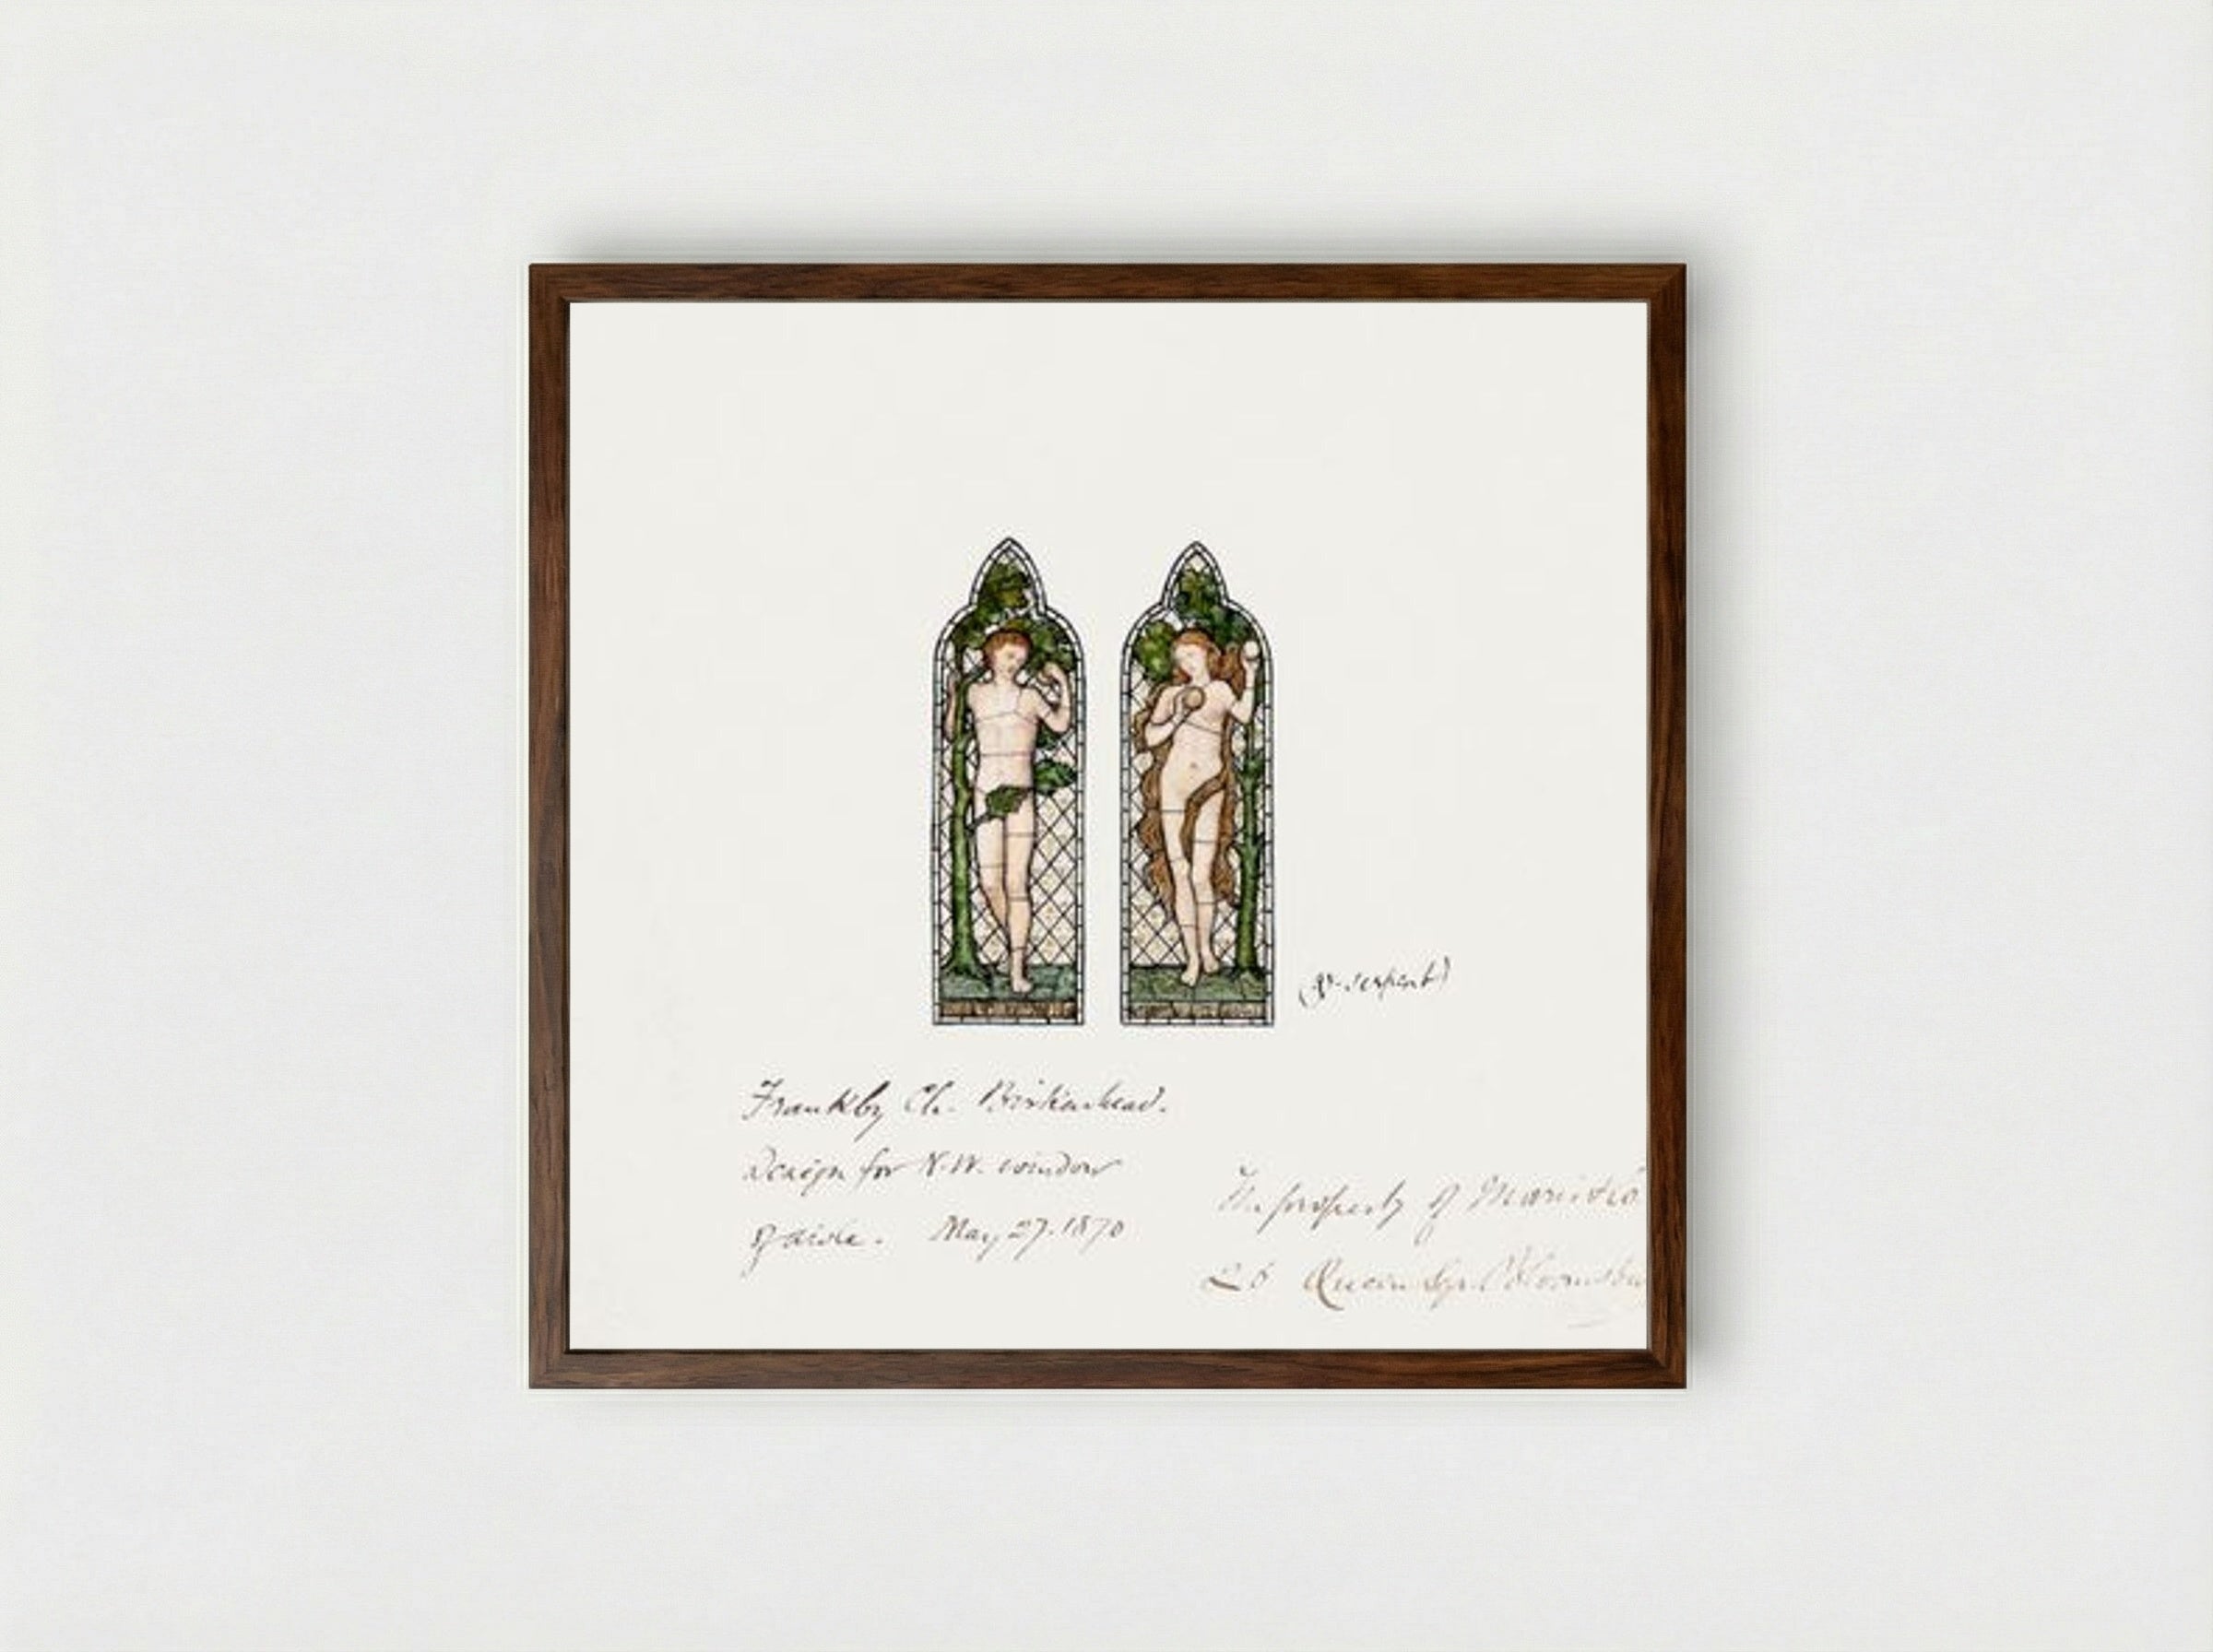 serpent)
Frankby Ch. Birkenhead.
Design for N.W. window
of aisle. May 27. 1870
The property of Morris & Co
26 Queen Sq. Bloomsbu